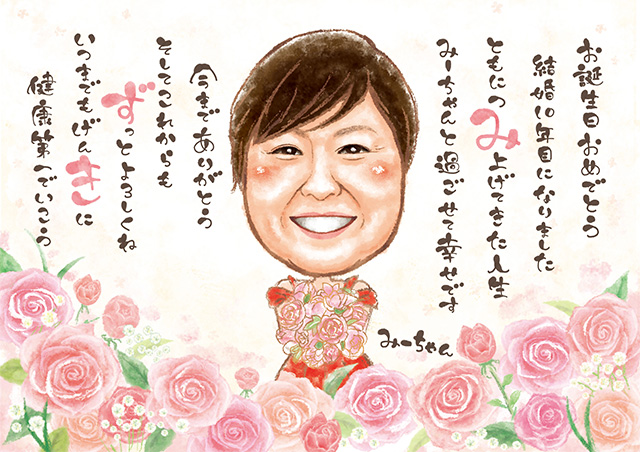 お誕生日おめでとう
結婚10年目になりました
ともにつみ上げてきた人生
みーちゃんと過ごせて幸せです
今まであありがとう
そしてこれからも
ずっとよろしくね
いつまでもげんきに
健康第一でいこう
みーちゃん